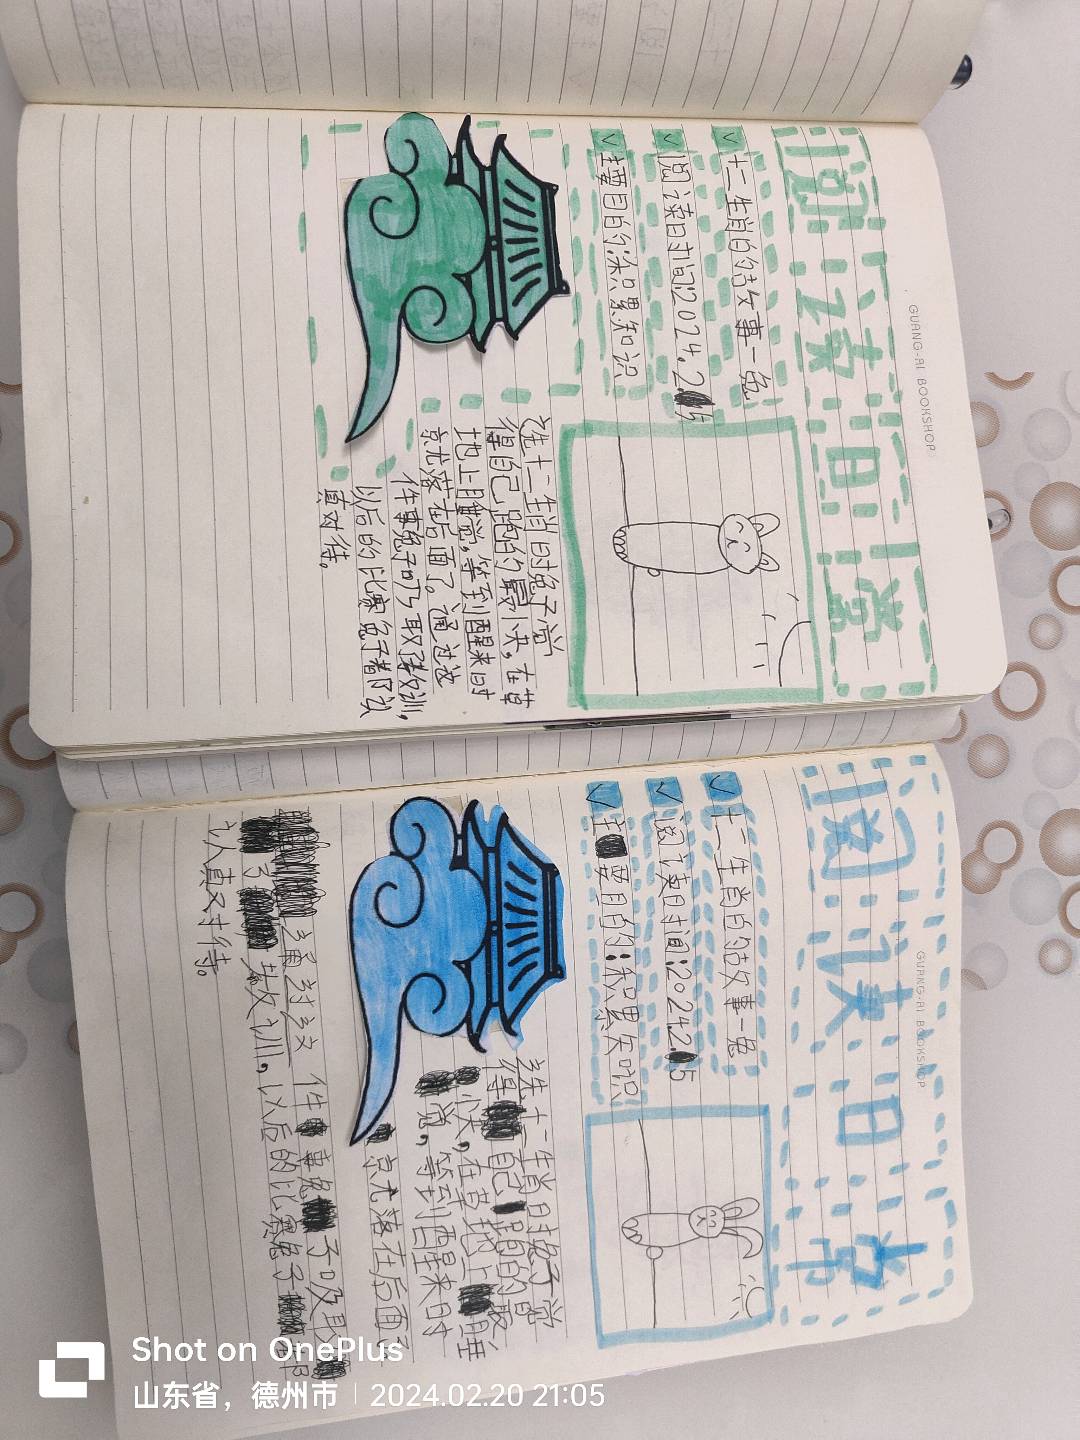 阅读日常
十二生肖的故事一兔
阅读时间:2024.2.15
主要目的:积累知识
选十二生肖时兔子觉
得自己跑的最快,在草
地上睡觉,等到醒来时
就落在后面了。通过这
件事兔子吸取教训,
以后的比赛兔子都认
真对待。
GUANG-AI BOOKSHOP
阅读日常
十二生肖的故事一兔
阅读时间:2024.2.15
主要目的:积累知识
选十二生肖时兔子觉
得自己跑的最
快,在草地上睡
觉,等到醒来时
就落在后面了
通过这件事兔子吸取
教训,以后的比赛兔子都
认真对待。
GUANG-AI BOOKSHOP
Shot on OnePlus
山东省,德州市 | 2024.02.20 21:05